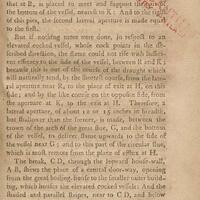 that at B, is placed to meet and support the
the bottom of the vessel, outward to K. And on the right
of this pier, the second lateral aperture is made equal
to the first.
But if nothing more were done, in respect to an
elevated cocked vessel, whose cock points in the
scribed direction, the flame could not rise with sufficient
efficacy to the side of the vessel, between R and K;
because this is out of the course of the draught which
will naturally tend, by the shortest course, from the
aperture near R, to the place of exit at H, on this
side; and by the like course on the opposite side, from
the aperture at K, to the exit at H. Therefore, a
lateral aperture, of about 12 or 15 inches in breadth,
but shallower than the former, is made, between the
crown of the arch of the great flue, G, and the bottom
of the vessel, to deliver flame upwards to the side of
the vessel next G; and to this part of the circular flue,
which is most remote from the place of efflux at H.
The break, C D, through the leeward house-wall,
A B, shews the place of a central door-way, opening
from the great boiling-house to the smaller outer building,
which incloses the elevated cocked vessels: And the
shaded and parallel stripes, near to C D, and below